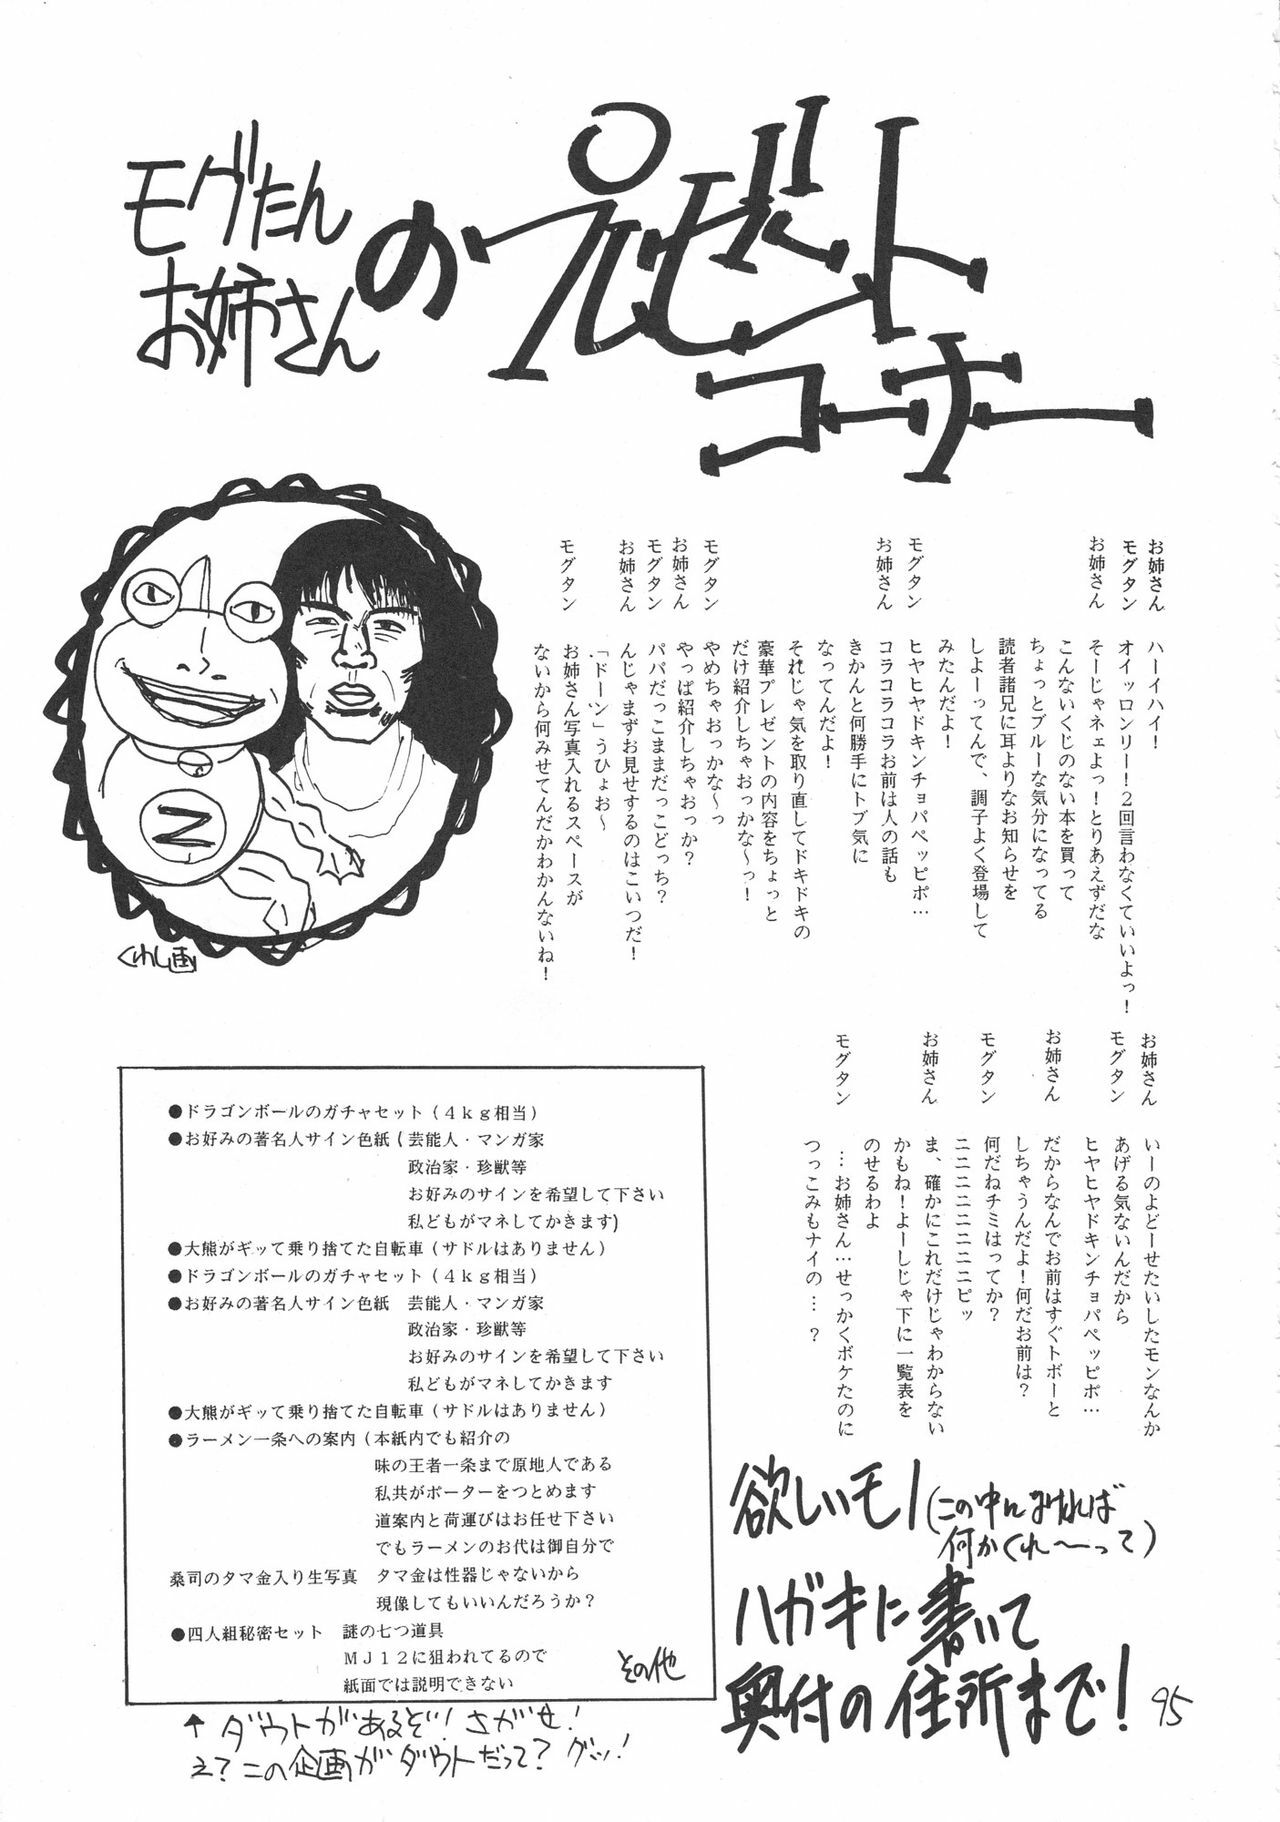 モグたん
お姉さん
の
プレゼント
コーナー
お姉さん　ハーイハイ！
モグタン　オイッロンリー！２回言わなくていいよっ！
お姉さん　そーじゃネェよっ！とりあえずだな
こんないくじのない本を買って
ちょっとブルーな気分になってる
読者諸兄に耳よりなお知らせを
しよーってんで、調子よく登場して
みたんだよ！
モグタン　ヒヤヒヤドキンチョパペッピポ…
お姉さん　コラコラコラお前は人の話も
きかんと何勝手にトブ気に
なってんだよ！
それじゃ気を取り直してドキドキの
豪華プレゼントの内容をちょっと
だけ紹介しちゃおっかな〜っ！
モグタン　やめちゃおっかな〜っ
お姉さん　やっぱ紹介しちゃおっか？
モグタン　パパだっこママだっこどっち？
お姉さん　んじゃまずお見せするのはこいつだ！
「ドーン」うひょお〜
モグタン　お姉さん写真入れるスペースが
ないから何みせてんだかわかんないね！
くわし画
お姉さん　いーのよどーせたいしたモンなんか
あげる気ないんだから
モグタン　ヒヤヒヤドキンチョパペッピポ…
お姉さん　だからなんでお前はすぐトボーと
しちゃうんだよ！何だお前は？
モグタン　何だねチミはってか？
ニニニニニニニピッ
お姉さん　ま、確かにこれだけじゃわからない
かもね！よーしじゃ下に一覧表を
のせるわよ
モグタン　…お姉さん…せっかくボケたのに
つっこみもナイの…？
●ドラゴンボールのガチャセット（４ｋｇ相当）
●お好みの著名人サイン色紙（芸能人・マンガ家
政治家・珍獣等
お好みのサインを希望して下さい
私どもがマネしてかきます)
●大熊がギッて乗り捨てた自転車（サドルはありません）
●ドラゴンボールのガチャセット（４ｋｇ相当）
●お好みの著名人サイン色紙　芸能人・マンガ家
政治家・珍獣等
お好みのサインを希望して下さい
私どもがマネしてかきます
●大熊がギッて乗り捨てた自転車（サドルはありません）
●ラーメン一条への案内（本紙内でも紹介の
味の王者一条まで原地人である
私共がポーターをつとめます
道案内と荷運びはお任せ下さい
でもラーメンのお代は御自分で
桑司のタマ金入り生写真　タマ金は性器じゃないから
現像してもいいんだろうか？
●四人組秘密セット　謎の七つ道具
ＭＪ１２に狙われてるので
紙面では説明できない
その他
↑ ダウトがあるぞ！さがせ！
え？この企画がダウトだって？グッ！
欲しいモノ（この中になければ
何かくれ〜って）
ハガキに書いて
奥付の住所まで！
95